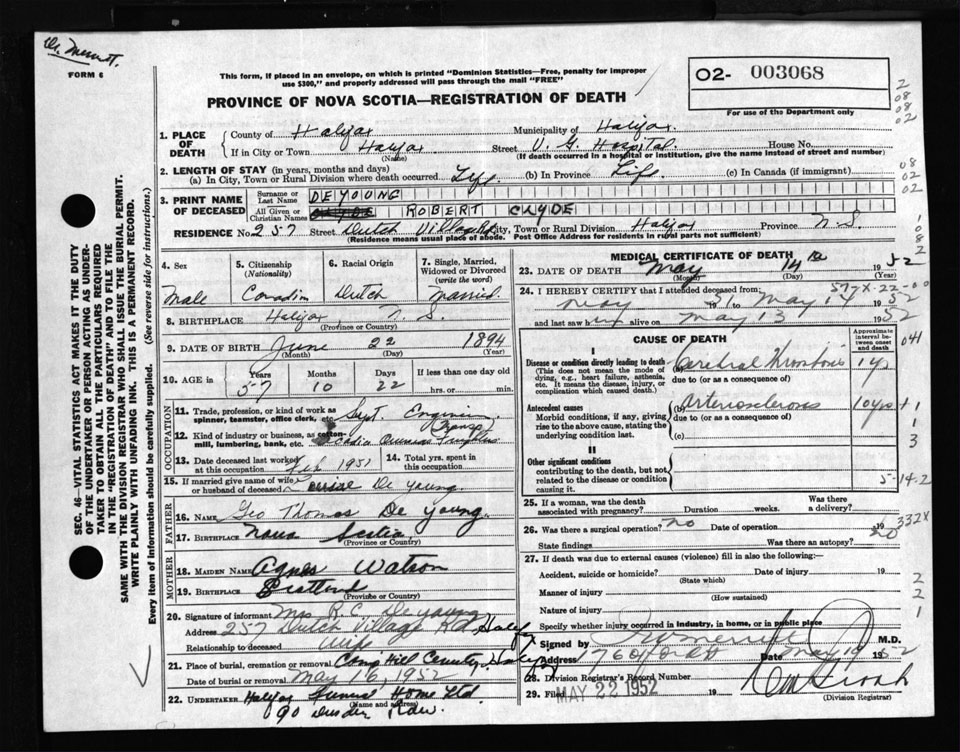 Dr. Merritt.
FORM 6
This form, if placed in an envelope, on which is printed "Dominion Statistics—Free, penalty for improper
use $300," and properly addressed will pass through the mail "FREE"
PROVINCE OF NOVA SCOTIA—REGISTRATION OF DEATH
02- 003068
For use of the Department only
2
08
08
02
1. PLACE OF DEATH
County of Halifax Municipality of Halifax.
If in City or Town Halifax Street V. G. Hospital. House No.
(Name) (If death occurred in a hospital or institution, give the name instead of street and number)
2. LENGTH OF STAY (in years, months and days)
(a) In City, Town or Rural Division where death occurred Life (b) In Province Life. (c) In Canada (if immigrant)
08
02
02
3. PRINT NAME OF DECEASED
Surname or Last Name DEYOUNG
All Given or Christian Names CLYDE ROBERT CLYDE
RESIDENCE No. 257 Street Dutch Village Rd City, Town or Rural Division Halifax Province N.S.
(Residence means usual place of abode. Post Office Address for residents in rural parts not sufficient)
SEC. 46—VITAL STATISTICS ACT MAKES IT THE DUTY
OF THE UNDERTAKER OR PERSON ACTING AS UNDER-
TAKER TO OBTAIN ALL THE PARTICULARS REQUIRED
IN THE "REGISTRATION OF DEATH" AND TO FILE THE
SAME WITH THE DIVISION REGISTRAR WHO SHALL ISSUE THE BURIAL PERMIT.
WRITE PLAINLY WITH UNFADING INK. THIS IS A PERMANENT RECORD.
Every item of Information should be carefully supplied. (See reverse side for instructions.)
4. Sex
Male
5. Citizenship
(Nationality)
6. Racial Origin
Dutch
7. Single, Married,
Widowed or Divorced
(write the word)
Married.
8. BIRTHPLACE Halifax, N. S.
(Province or Country)
9. DATE OF BIRTH June 22 1894
(Month) (Day) (Year)
10. AGE in Years Months Days If less than one day
57 10 22 hrs. or min.
OCCUPATION
11. Trade, profession, or kind of work as
spinner, teamster, office clerk, etc.
12. Kind of industry or business, as cotton-
mill, lumbering, bank, etc.
13. Date deceased last worked
at this occupation Feb 1951
14. Total yrs. spent in
this occupation
15. If married give name of wife
or husband of deceased De Young.
FATHER
16. NAME Geo Thomas De Young.
17. BIRTHPLACE Nova Scotia
(Province or Country)
MOTHER
18. MAIDEN NAME Agnes Watson
19. BIRTHPLACE Scotland
(Province or Country)
20. Signature of informant Mrs R. C. De Young
Address 257 Dutch Village Rd, Halifax
Relationship to deceased Wife
21. Place of burial, cremation or removal Camp Hill Cemetery, Halifax
Date of burial or removal May 16, 1952
22. UNDERTAKER Halifax Funeral Home Ltd
(Name and address)
90 Row.
MEDICAL CERTIFICATE OF DEATH
23. DATE OF DEATH May 14th 1952
(Month) (Day) (Year)
24. I HEREBY CERTIFY that I attended deceased from: 57 Y-X-22-00
May 51 to May 14 1952
and last saw him alive on May 13 1952
CAUSE OF DEATH
Approximate interval between onset and death
041
I
Disease or condition directly leading to death
(This does not mean the mode of
dying, e.g., heart failure, asthenia,
etc. It means the disease, injury, or
complication which caused death.)
(a) Cerebral Thrombosis 1 yr
due to (or as a consequence of)
Antecedent causes
Morbid conditions, if any, giving
rise to the above cause, stating the
underlying condition last.
(b) Arteriosclerosis 10 yrs +
due to (or as a consequence of)
(c)
1
1
3
II
Other significant conditions
contributing to the death, but not
related to the disease or condition
causing it.
5-14-2
25. If a woman, was the death
associated with pregnancy? Duration weeks. Was there a delivery?
26. Was there a surgical operation? no Date of operation 19
332X
State findings Was there an autopsy? no
27. If death was due to external causes (violence) fill in also the following:—
Accident, suicide or homicide? Date of injury 19
(State which)
Manner of injury
(How sustained)
Nature of injury
2
2
1
Specify whether injury occurred in industry, in home, or in public place
Signed by Merritt M.D.
Address 76 Oxford St Date May 19 1952
28. Division Registrar's Record Number
29. Filed MAY 22 1952 19
(Division Registrar)